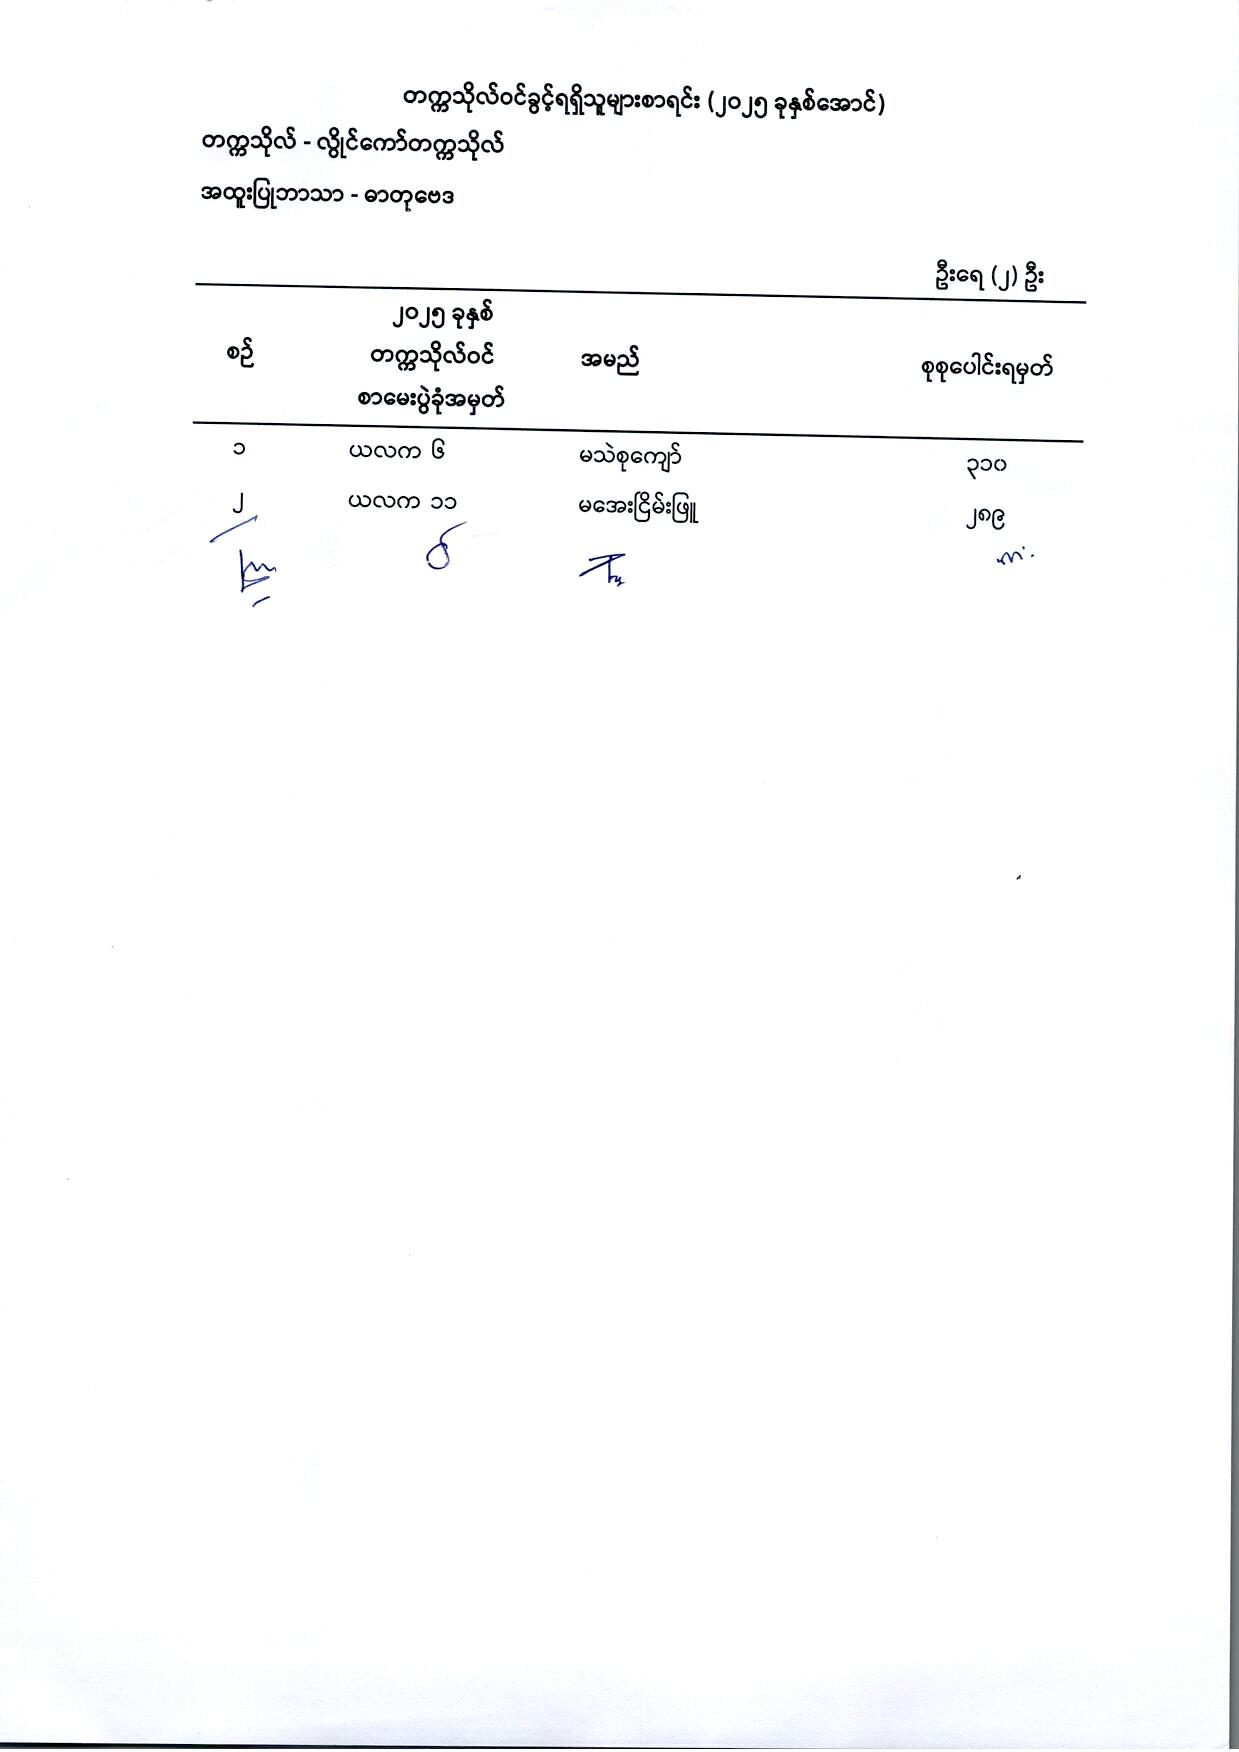 တက္ကသိုလ်ဝင်ခွင့်ရရှိသူများစာရင်း (၂၀၂၅ ခုနှစ်အောင်)
တက္ကသိုလ် - လွိုင်ကော်တက္ကသိုလ်
အထူးပြုဘာသာ - ဓာတုဗေဒ
ဦးရေ (၂) ဦး
စဉ် ၂၀၂၅ ခုနှစ် တက္ကသိုလ်ဝင် စာမေးပွဲခုံအမှတ် အမည် စုစုပေါင်းရမှတ်
၁ ယလက ၆ မသဲစုကျော် ၃၁၀
၂ ယလက ၁၁ မအေးငြိမ်းဖြူ ၂၈၉